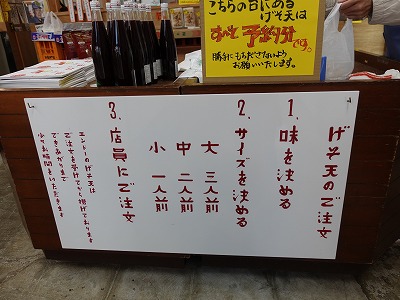 こちらの台にある
げそ天は
すべて予約分です。
勝手にもちださないよう
お願いいたします。
げそ天のご注文
1、味を決める
2、サイズを決める
大 三人前
中 二人前
小 一人前
3、店員にご注文
エンドーのげそ天は
ご注文を受けてから揚げております
できあがりまで
少々お時間をいただきます